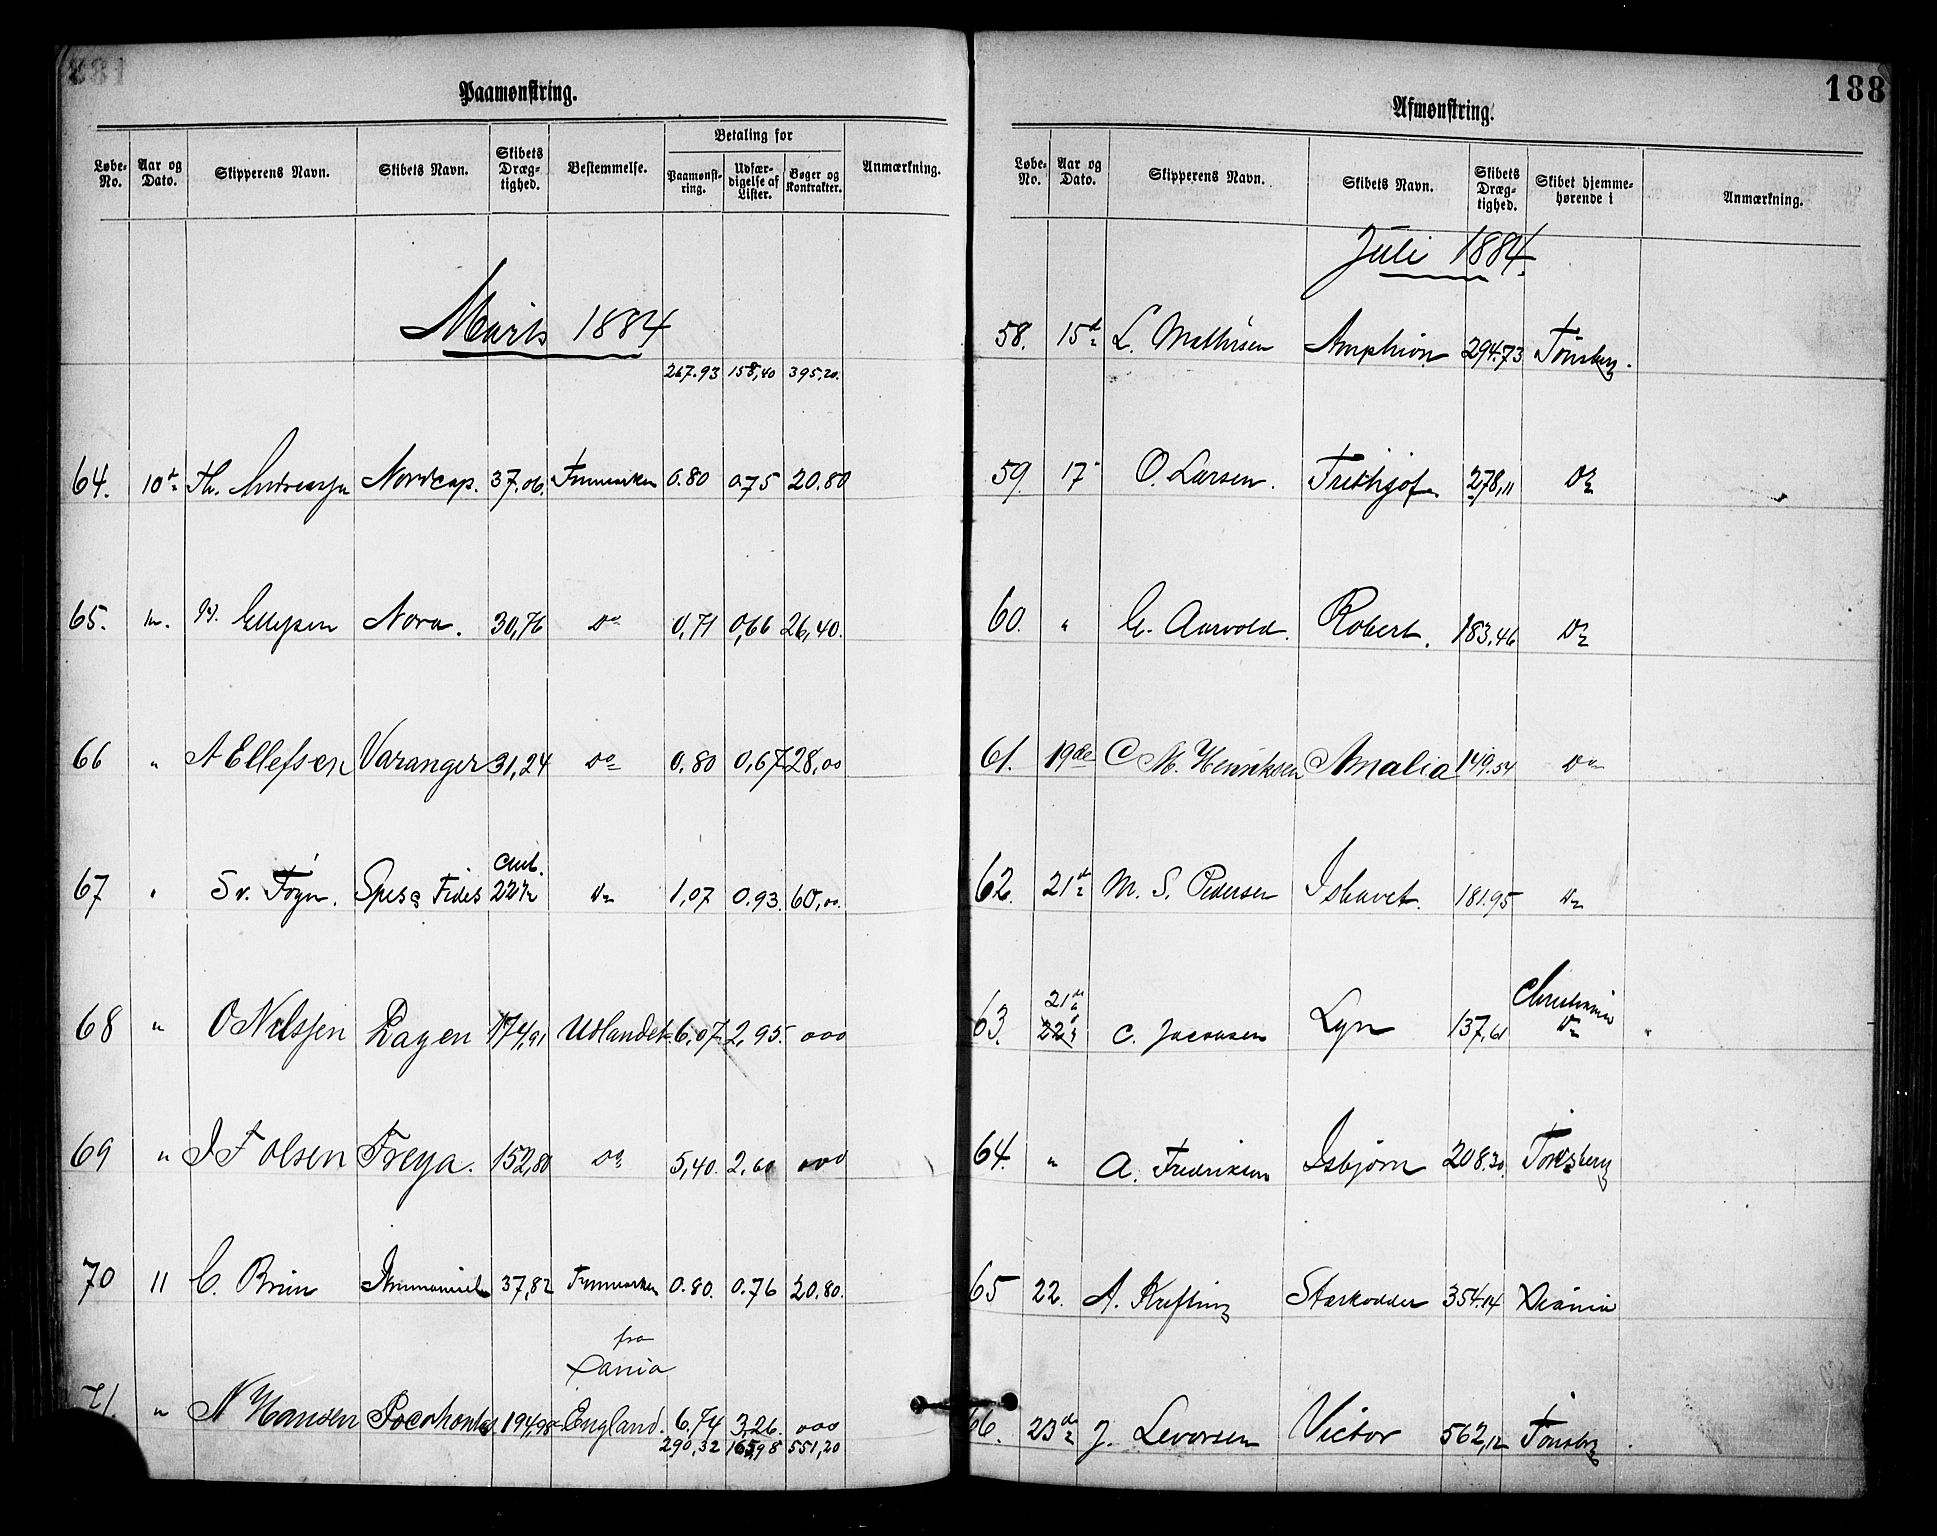 Paamønstring.
Løbe-No. Aar og Dato. Skipperens Navn. Skibets Navn. Skibets Dræg-tighed. Bestemmelse. Betaling for Paamønst-ring. Udfær-digelse af Lister. Bøger og Kontrakter. Anmærkning.
Marts 1884
267.93 158,40 395,20.
64. 10de Th. Andreassen Nordcap. 37.06. Finmarken 0.80 0.75 20.80
65. Ellefsen Nora. 30,76 Do 0,71 0,66 26,40.
66 " A Ellefsen Varanger 31,24 Do 0.80 0,67 28,00
67 " Sv. Føyn. Spes & Fides Do 1,07 0.93. 60,00.
68 " O Nilssen Dagen 174,91 Udlandet 6,07 2,95. 000
69 " J F Olsen Freya. 152,80 Do 5,40. 2,60 000
70 11 C. Brun Immanuel 37,82 Finmarken 0.80. 0.76 20.80.
fra
Xania
71. " N Hansen Pocahontas 194,98 England. 6,74 3,26. 000
290,32 165,98 551,20
188
Afmønstring.
Løbe-No. Aar og Dato. Skipperens Navn. Skibets Navn. Skibets Dræg-tighed. Skibet hjemme-hørende i Anmærkning.
Juli 1884.
58. 15de L. Mathisen Amphion 294.73 Tønsberg.
59. 17 O. Larsen. Frithjof 278,11 Do
60. " G. Aarvold. Robert. 183,46 Do
61. 19de C M. Henriksen Amalia 149.54 Do
62. 21de M. S. Pedersen Ishavet. 181.95 Do
63. 21de 22de C. Jacobsen Lyn 137,61 Christiania Do
64. " A. Fredriksen Isbjørn 208.30. Tønsberg
65 22. A. Krefting Stærkodder 354.14 Xiania
66. 23de J. Levorsen Victor 562,12 Tønsberg.